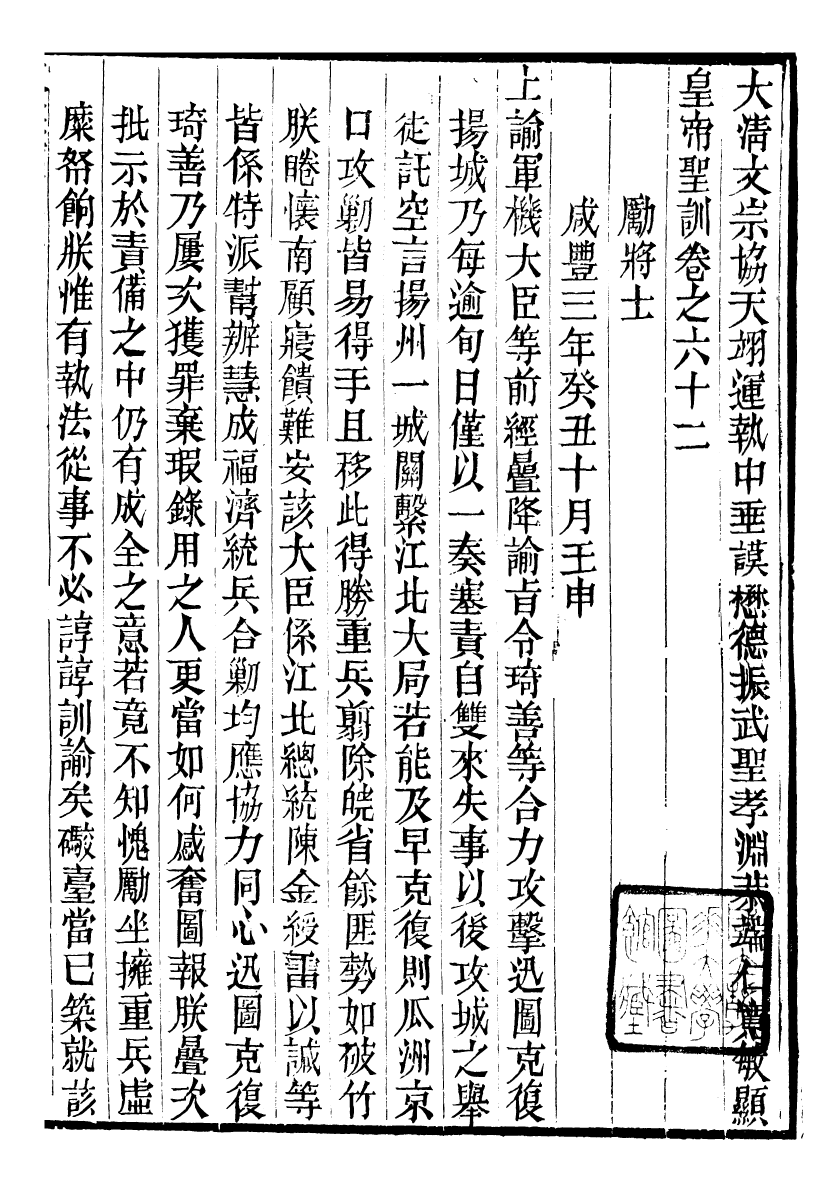 大清文宗協天翊運執中垂謨懋德振武聖孝淵恭端仁寬敏顯
皇帝聖訓卷之六十二
勵將士
咸豐三年癸丑十月壬申
上諭軍機大臣等前經疊降諭旨令琦善等合力攻擊迅圖克復
揚城乃每逾旬日僅以一奏塞責自雙來失事以後攻城之舉
徒託空言揚州一城關繫江北大局若能及早克復則瓜洲京
口攻勦皆易得手且移此得勝重兵翦除皖省餘匪勢如破竹
朕睠懷南顧寢饋難安該大臣係江北總統陳金綬雷以諴等
皆係特派幫辦慧成福濟統兵合勦均應協力同心迅圖克復
琦善乃屢次獲罪棄瑕錄用之人更當如何感奮圖報朕疊次
批示於責備之中仍有成全之意若竟不知愧勵坐擁重兵虛
糜帑餉朕惟有執法從事不必諄諄訓諭矣礮臺當已築就該
大學
圖書
館藏